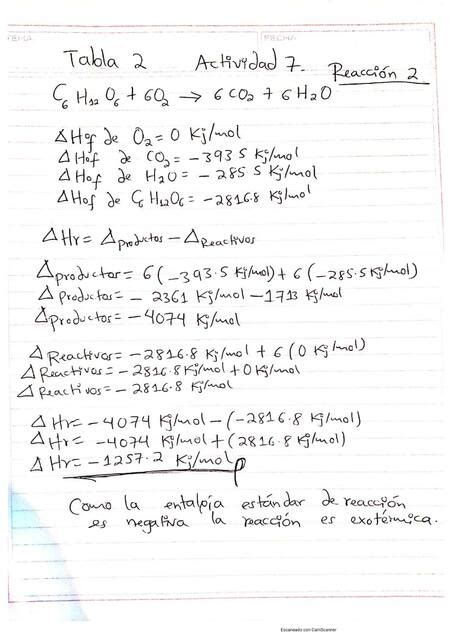 TEMA
FECHA
Tabla 2 Actividad 7.
Reacción 2
C6 H12 O6 + 6O2 → 6 CO2 + 6 H2O
ΔHof de O2 = 0 Kj/mol
ΔHof de CO2 = -393 5 Kj/mol
ΔHof de H2O = -285 5 Kj/mol
ΔHof de C6 H12O6 = -2816.8 Kj/mol
ΔHr = Δproductos - ΔReactivos
Δproductos = 6(-393.5 Kj/mol) + 6(-285.5 Kj/mol)
Δproductos = - 2361 Kj/mol - 1713 Kj/mol
Δproductos = -4074 Kj/mol
ΔReactivos = -2816.8 Kj/mol + 6 (0 Kj/mol)
ΔReactivos = -2816.8 Kj/mol + 0 Kj/mol
ΔReactivos = -2816.8 Kj/mol
ΔHr = -4074 Kj/mol - (-2816.8 Kj/mol)
ΔHr = -4074 Kj/mol + (2816.8 Kj/mol)
ΔHr = -1257.2 Kj/mol
Como la entalpia estándar de reacción
es negativa la reacción es exotérmica.
Escaneado con CamScanner